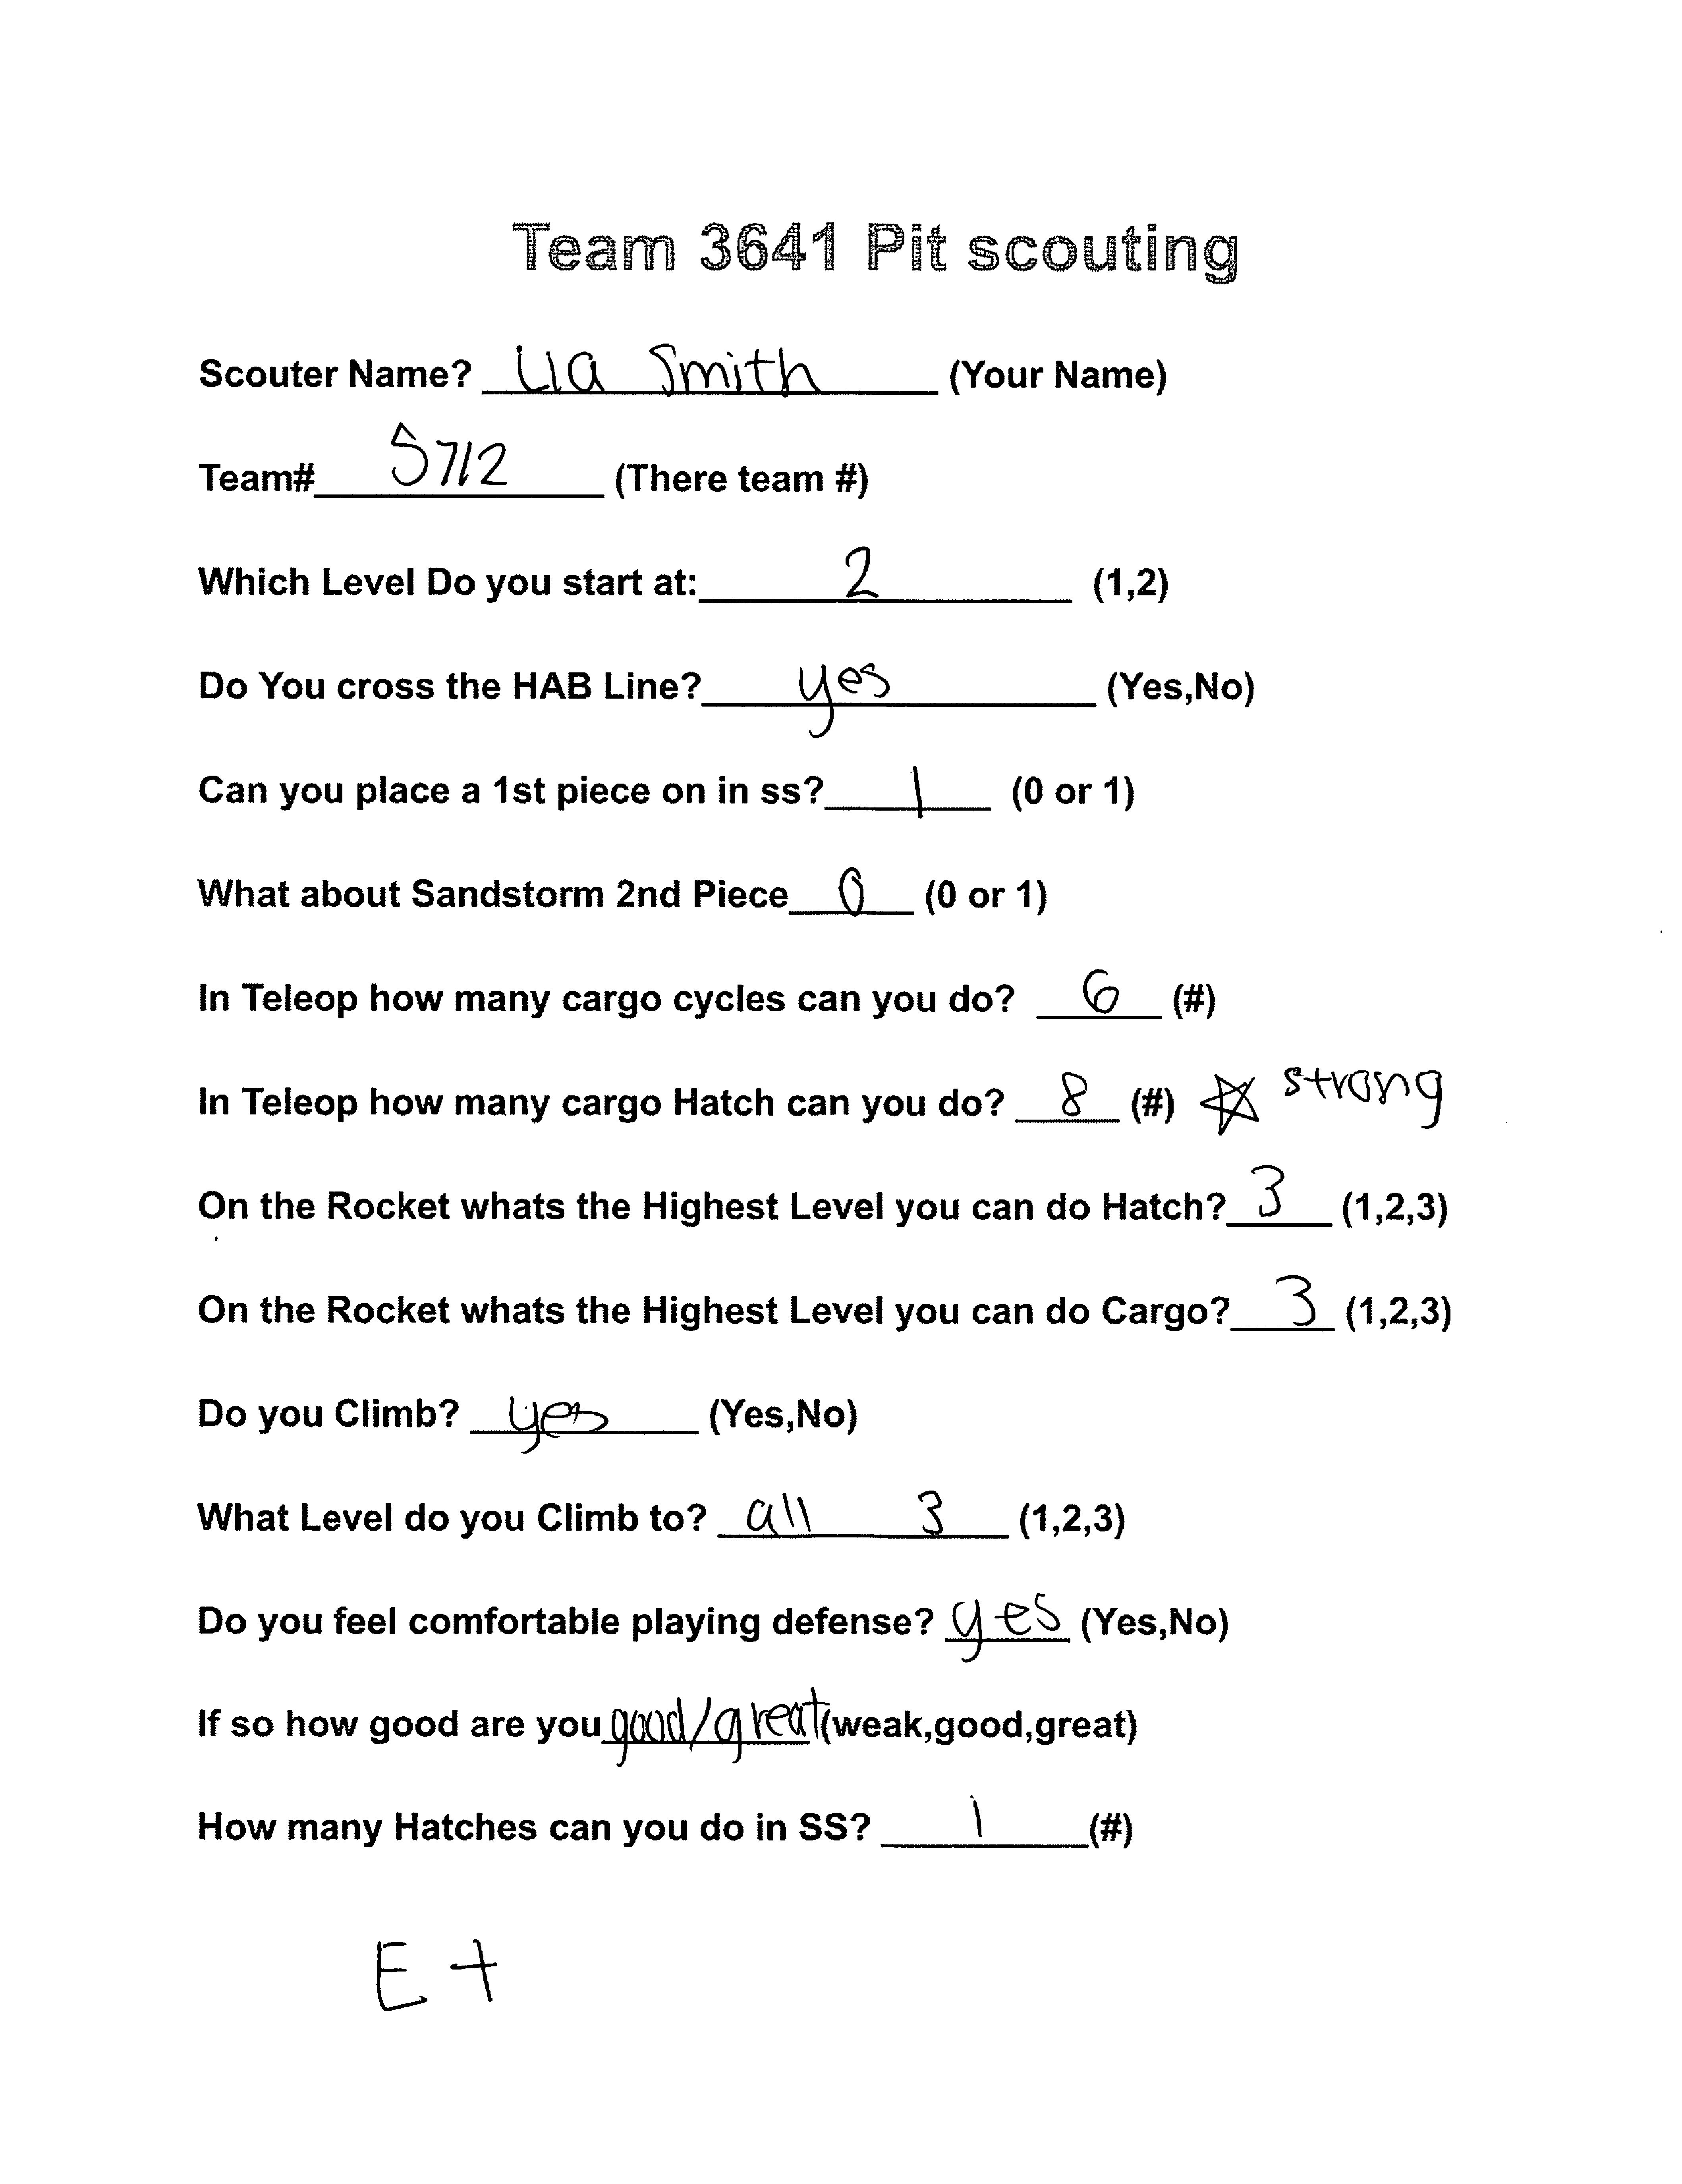 Team 3641 Pit scouting
Scouter Name? Lia Smith (Your Name)
Team# 5712 (There team #)
Which Level Do you start at: 2 (1,2)
Do You cross the HAB Line? yes (Yes,No)
Can you place a 1st piece on in ss? 1 (0 or 1)
What about Sandstorm 2nd Piece 0 (0 or 1)
In Teleop how many cargo cycles can you do? 6 (#)
In Teleop how many cargo Hatch can you do? 8 (#) ☆ strong
On the Rocket whats the Highest Level you can do Hatch? 3 (1,2,3)
On the Rocket whats the Highest Level you can do Cargo? 3 (1,2,3)
Do you Climb? yes (Yes,No)
What Level do you Climb to? all 3 (1,2,3)
Do you feel comfortable playing defense? yes (Yes,No)
If so how good are you good/great (weak,good,great)
How many Hatches can you do in SS? 1 (#)
E +